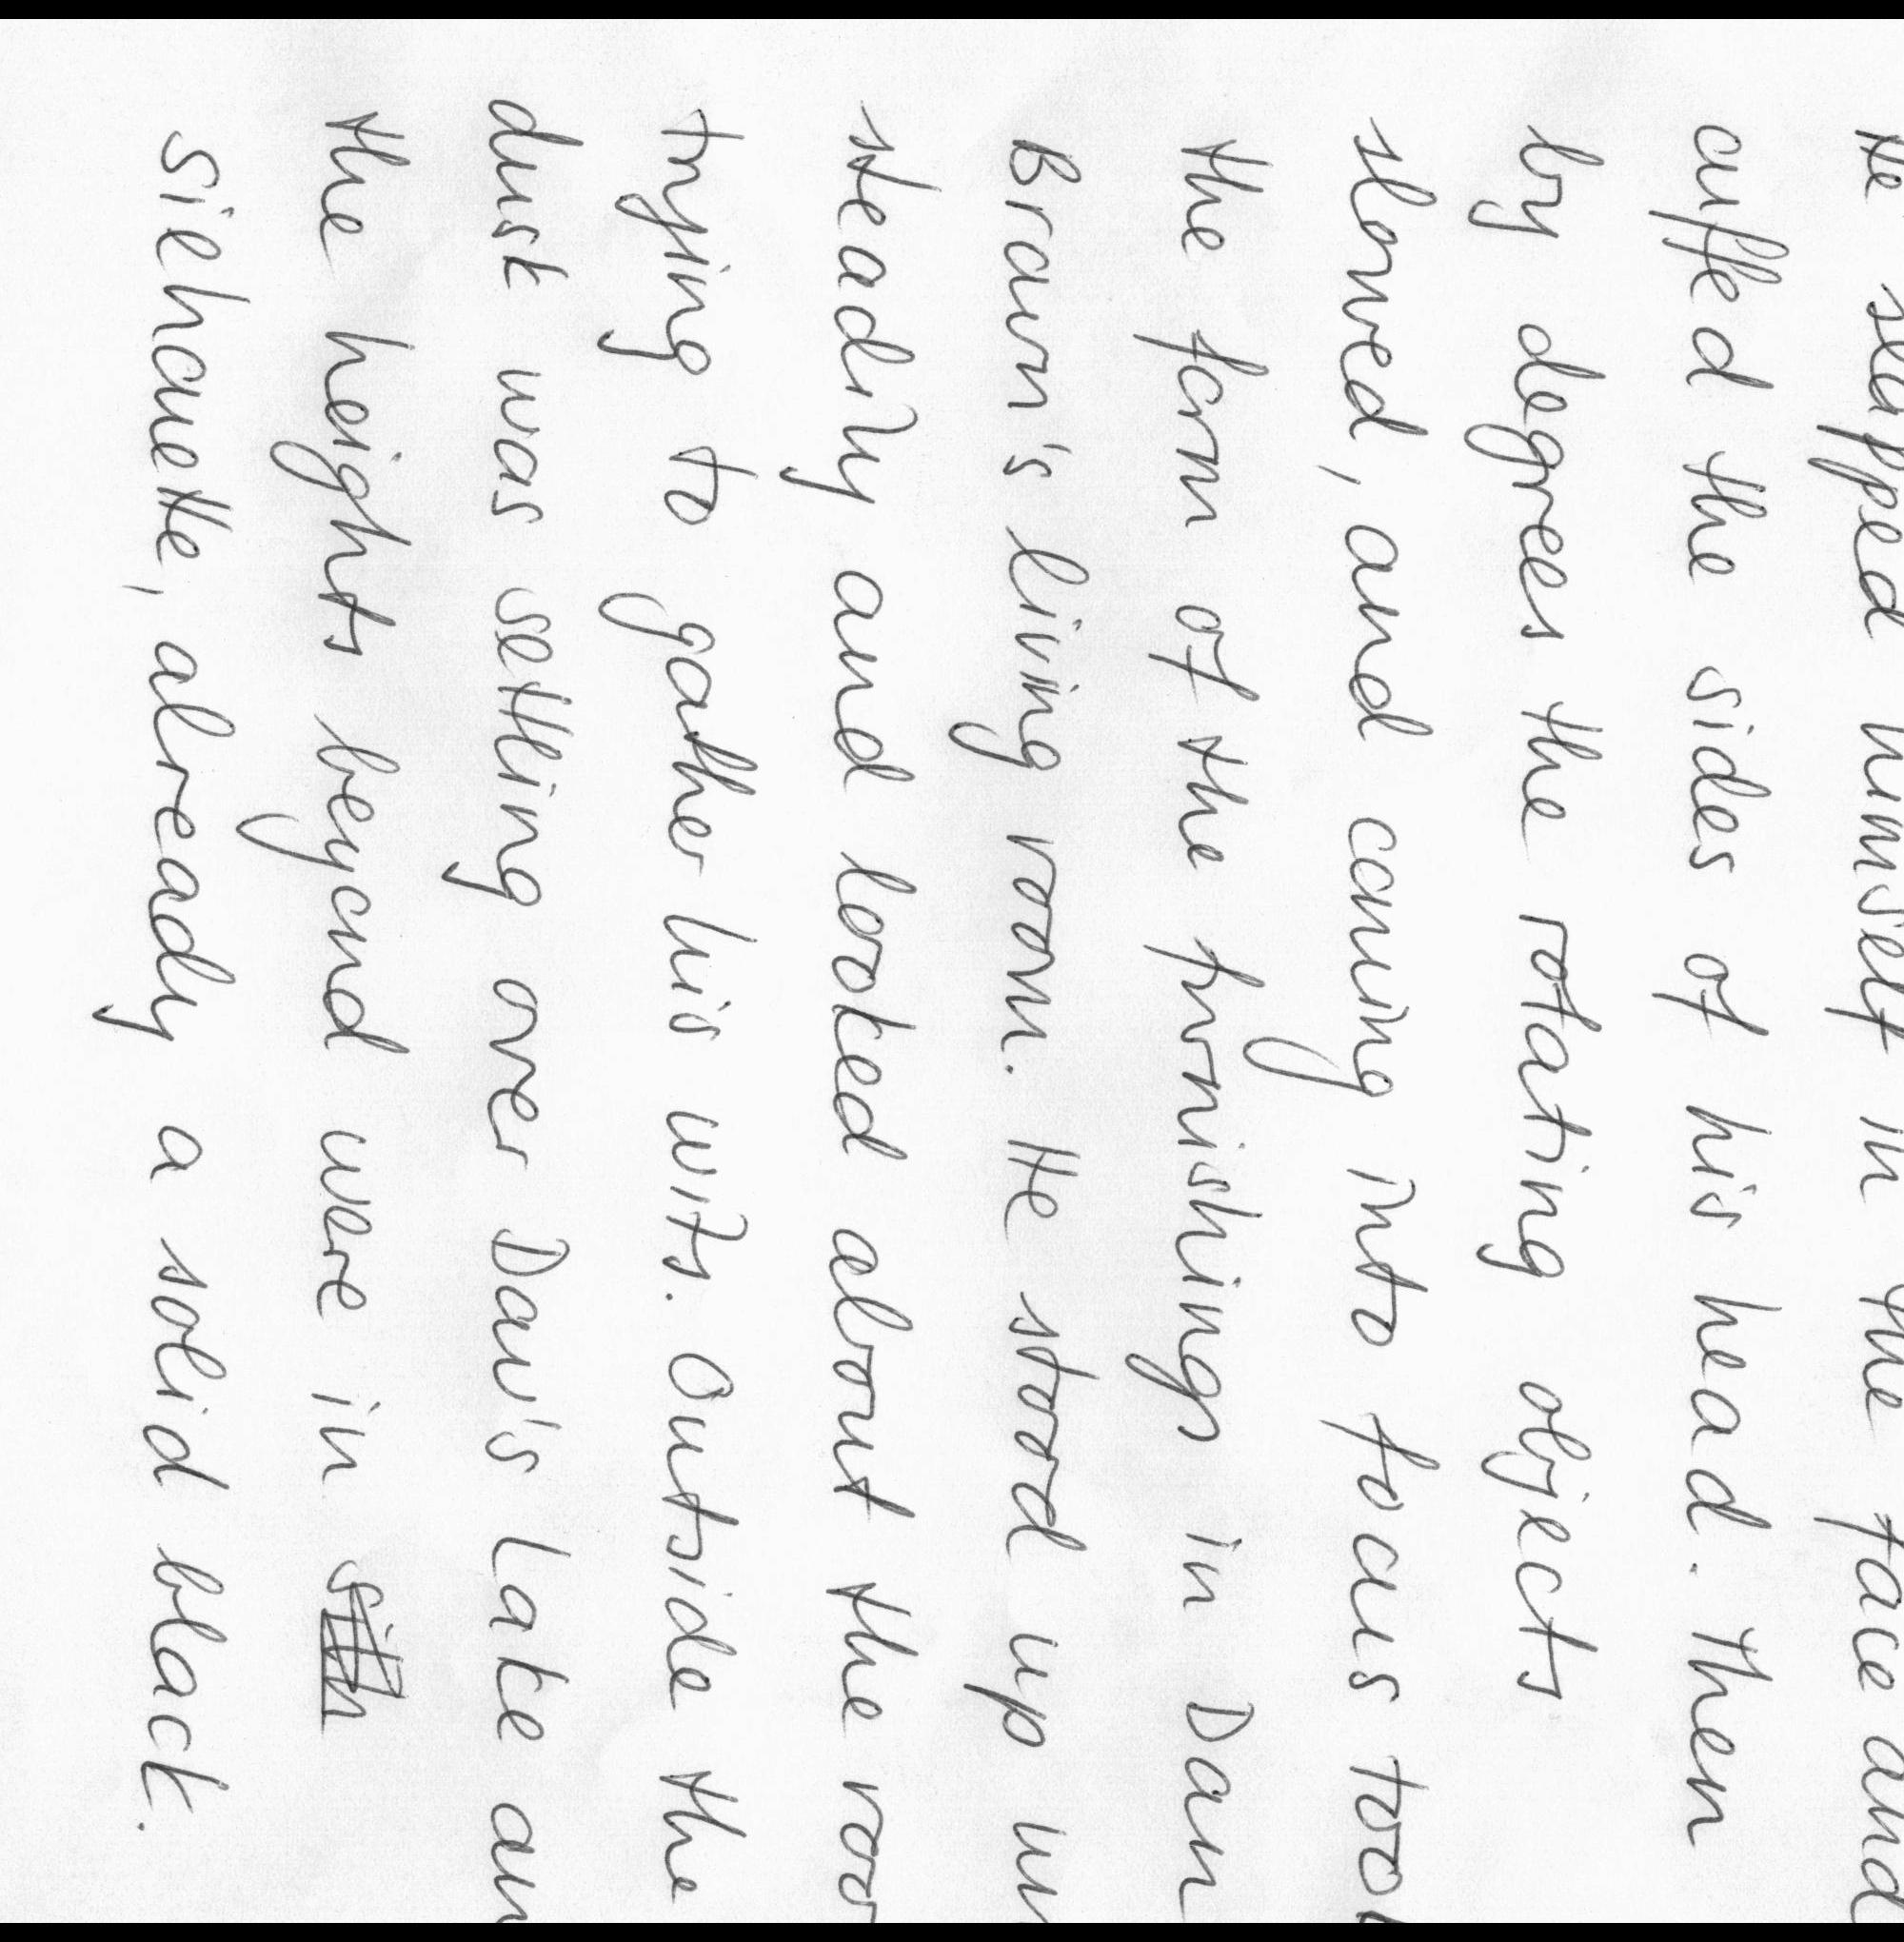 He slapped himself in the face and
cuffed the sides of his head. Then
by degrees the rotating objects
slowed, and coming into focus too
the form of the furnishings in Dan
Brown's living room. He stood up un
steadily and looked about the roo
trying to gather his wits. Outside the
dusk was settling over Dan's Lake an
the heights beyond were in
siehouette, already a solid black.